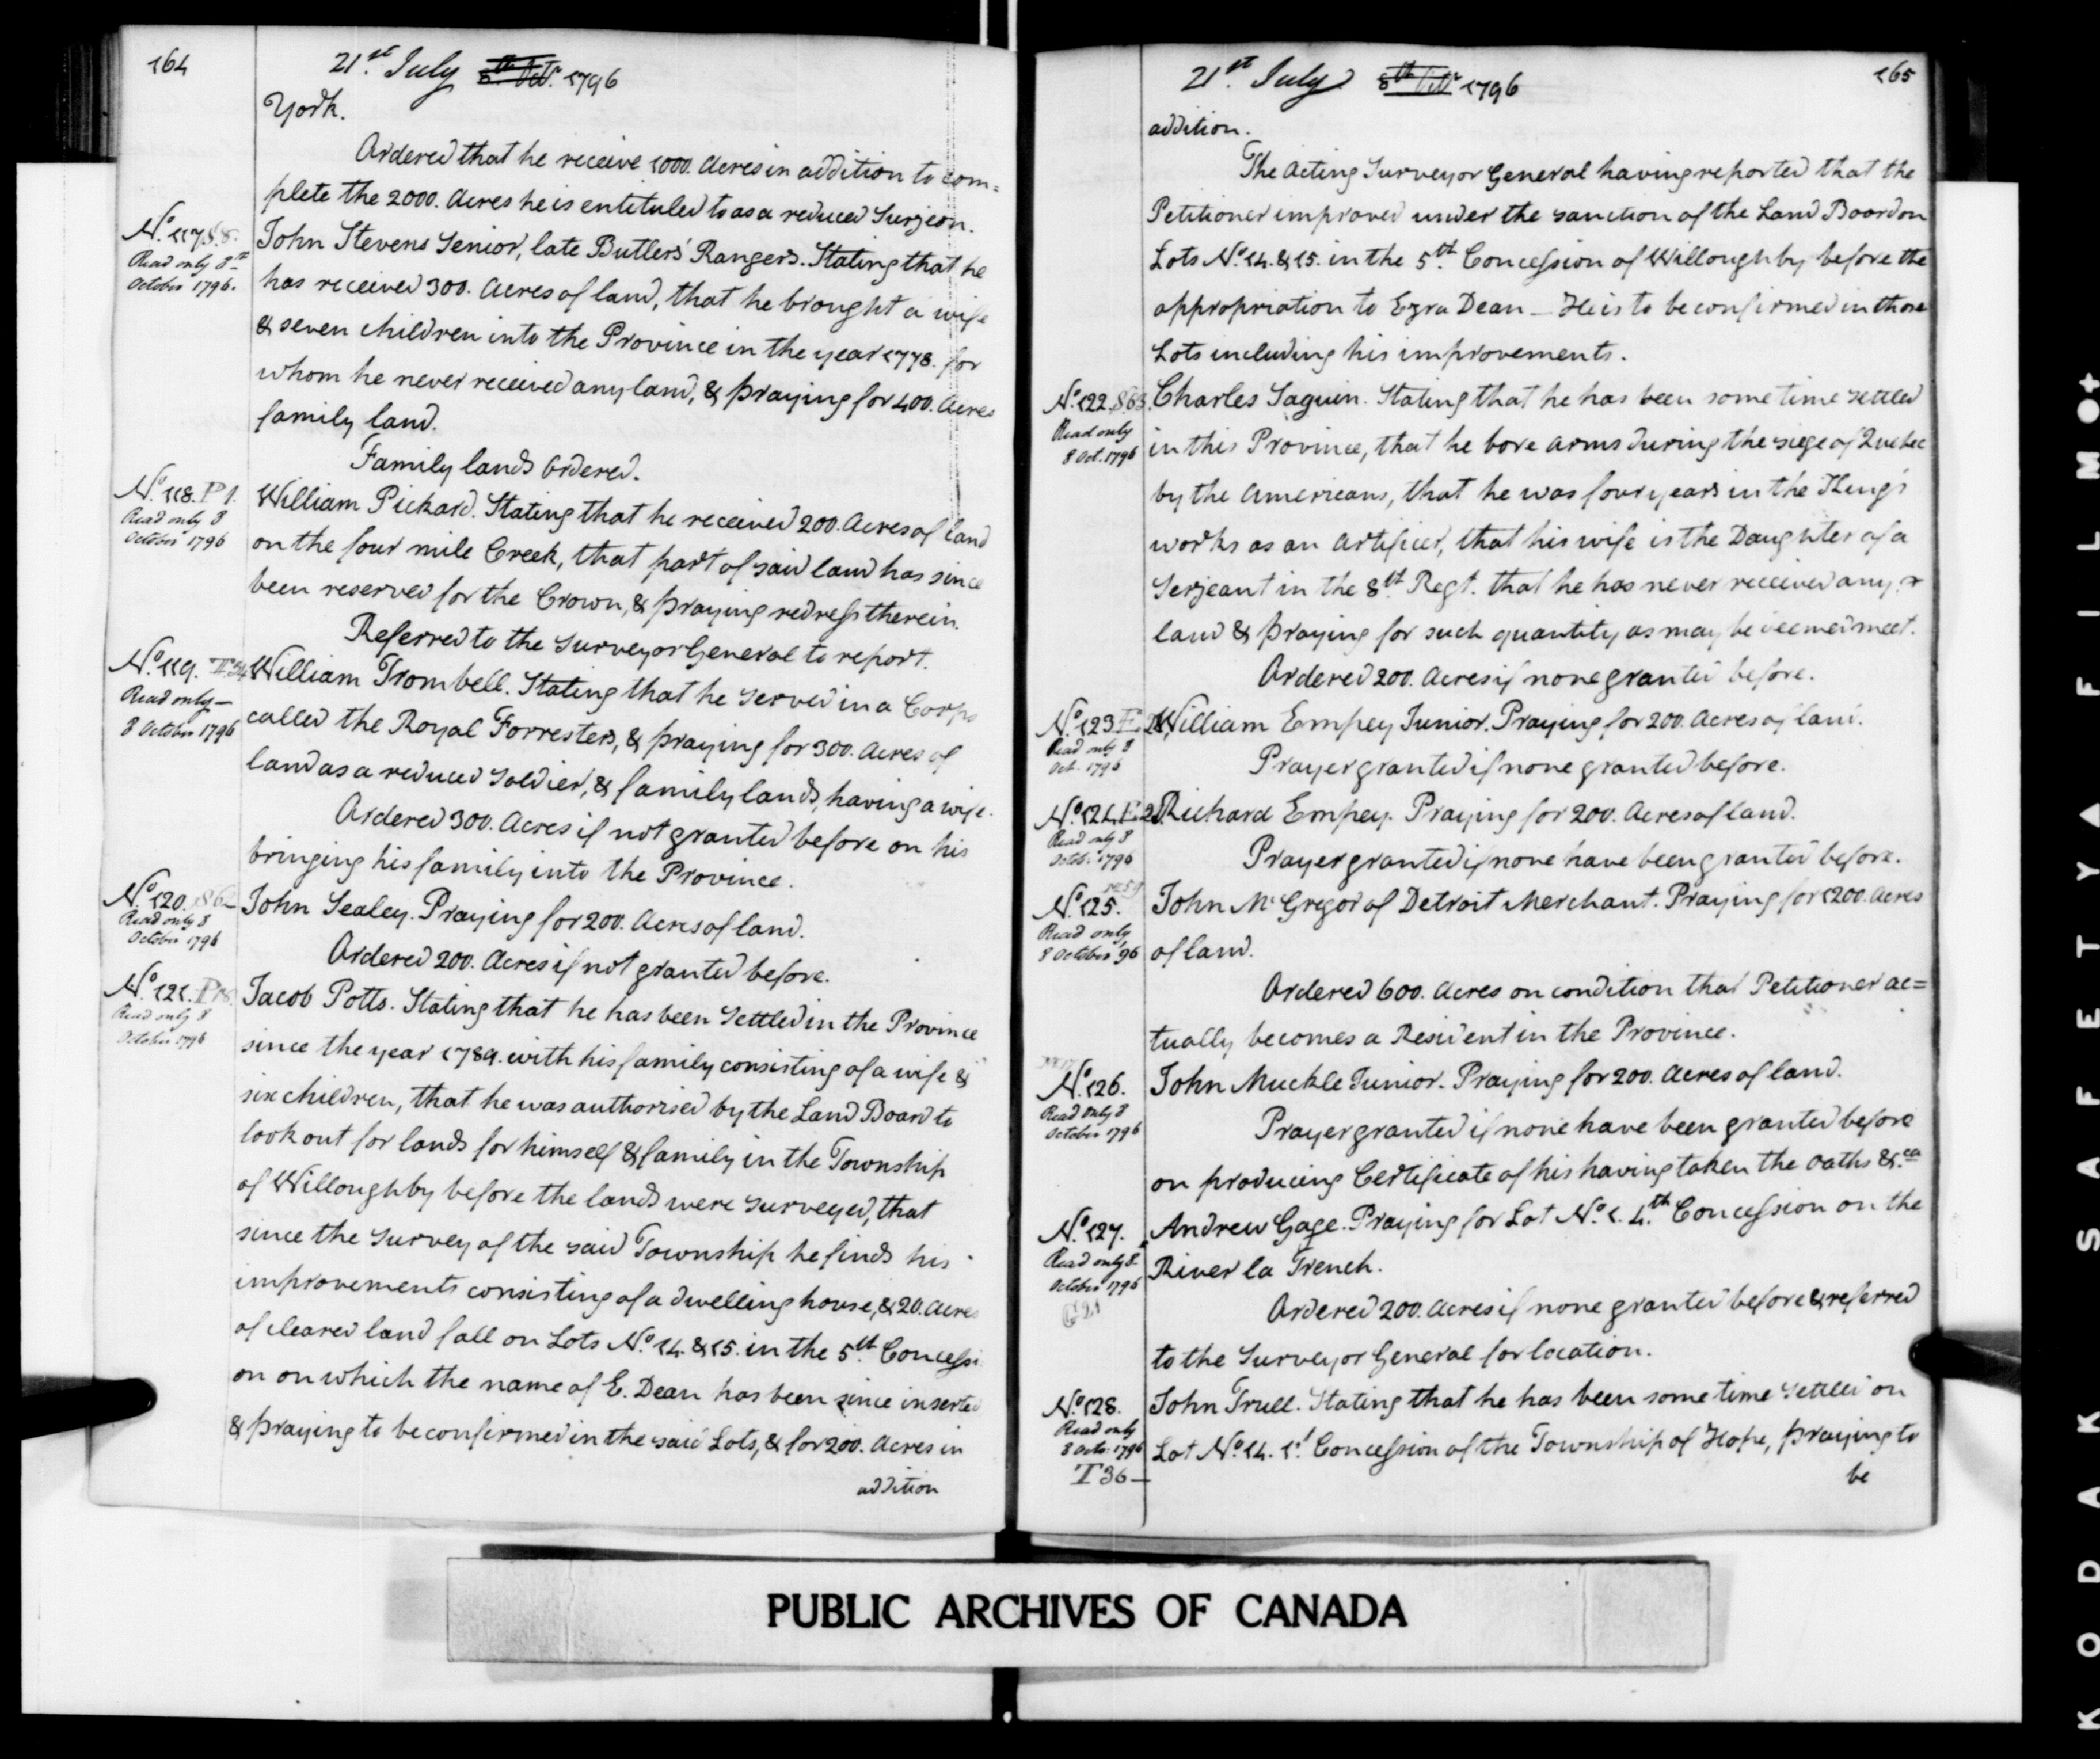 164
21st. July 8th Octr. 1796
York.
Ordered that he receive 1000. Acres in addition to com=
plete the 2000. Acres he is entituled to as a reduced Surgeon.
No. 117 S.8.
Read only 8th
October 1796.
John Stevens Senior, late Butlers' Rangers. Stating that he
has received 300. Acres of land, that he brought a wife
& seven children into the Province in the year 1778. for
whom he never received any land, & praying for 400. Acres
family land.
Family lands Ordered.
No. 118. P 1.
Read only 8
October 1796
William Pickard. Stating that he received 200. Acres of land
on the four mile Creek, that part of said land has since
been reserved for the Crown, & praying redress therein.
Referred to the Surveyor General to report.
No. 119.
Read only—
8 October 1796
William Trombell. Stating that he served in a Corps
called the Royal Forresters, & praying for 300. Acres of
land as a reduced Soldier, & family lands, having a wife.
Ordered 300. Acres if not granted before on his
bringing his family into the Province.
No. 120. S62
Read only 8
October 1796
John Sealey. Praying for 200. Acres of land.
Ordered 200. Acres if not granted before.
No. 121.
Read only 8
October 1796
Jacob Potts. Stating that he has been Settled in the Province
since the year 1789. with his family consisting of a wife &
six children, that he was authorised by the Land Board to
look out for lands for himself & family in the Township
of Willoughby before the lands were surveyed, that
since the Survey of the said Township he finds his
improvements consisting of a dwelling house, & 20. Acres
of cleared land fall on Lots No. 14. & 15. in the 5th. Concessi
on on which the name of E. Dean has been since inserted
& praying to be confirmed in the said Lots, & for 200. Acres in
addition
21st. July 8th Octr 1796
165
addition.
The Acting Surveyor General having reported that the
Petitioner improved under the sanction of the Land Board on
Lots No. 14. & 15. in the 5th. Concession of Willoughby before the
appropriation to Ezra Dean — He is to be confirmed in those
Lots including his improvements.
No. 122. S63.
Read only
8 Oct. 1796
Charles Saguin. Stating that he has been some time settled
in this Province, that he bore arms during the siege of Quebec
by the Americans, that he was four years in the King's
works as an Artificer, that his wife is the Daughter of a
Serjeant in the 8th Regt. that he has never received any
land & praying for such quantity as may be deemed meet.
Ordered 200. Acres if none granted before.
No. 123 E
Read only 8
Oct. 1796
William Empey Junior. Praying for 200. Acres of land.
Prayer granted if none granted before.
No. 124. E 2
Read only 8
Octbr. 1796
Richard Empey. Praying for 200. Acres of land.
Prayer granted if none have been granted before.
No. 125.
Read only
8 October '96
John McGregor of Detroit Merchant. Praying for 1200. Acres
of land.
Ordered 600. Acres on condition that Petitioner ac=
tually becomes a Resident in the Province.
No. 126.
Read only 8
October 1796
John Muckle Junior. Praying for 200. Acres of land.
Prayer granted if none have been granted before
on producing Certificate of his having taken the Oaths &ca
No. 127.
Read only 8
October 1796
Andrew Gage. Praying for Lot No. 1. 4.th Concession on the
River la Trench.
Ordered 200. Acres if none granted before & referred
to the Surveyor General for location.
No. 128.
Read only
8 Octr. 1796
T 36—
John Trull. Stating that he has been some time settled on
Lot No. 14. 1st. Concession of the Township of Hope, praying to
be
PUBLIC ARCHIVES OF CANADA
KODAK SAFETY▲FILM●+